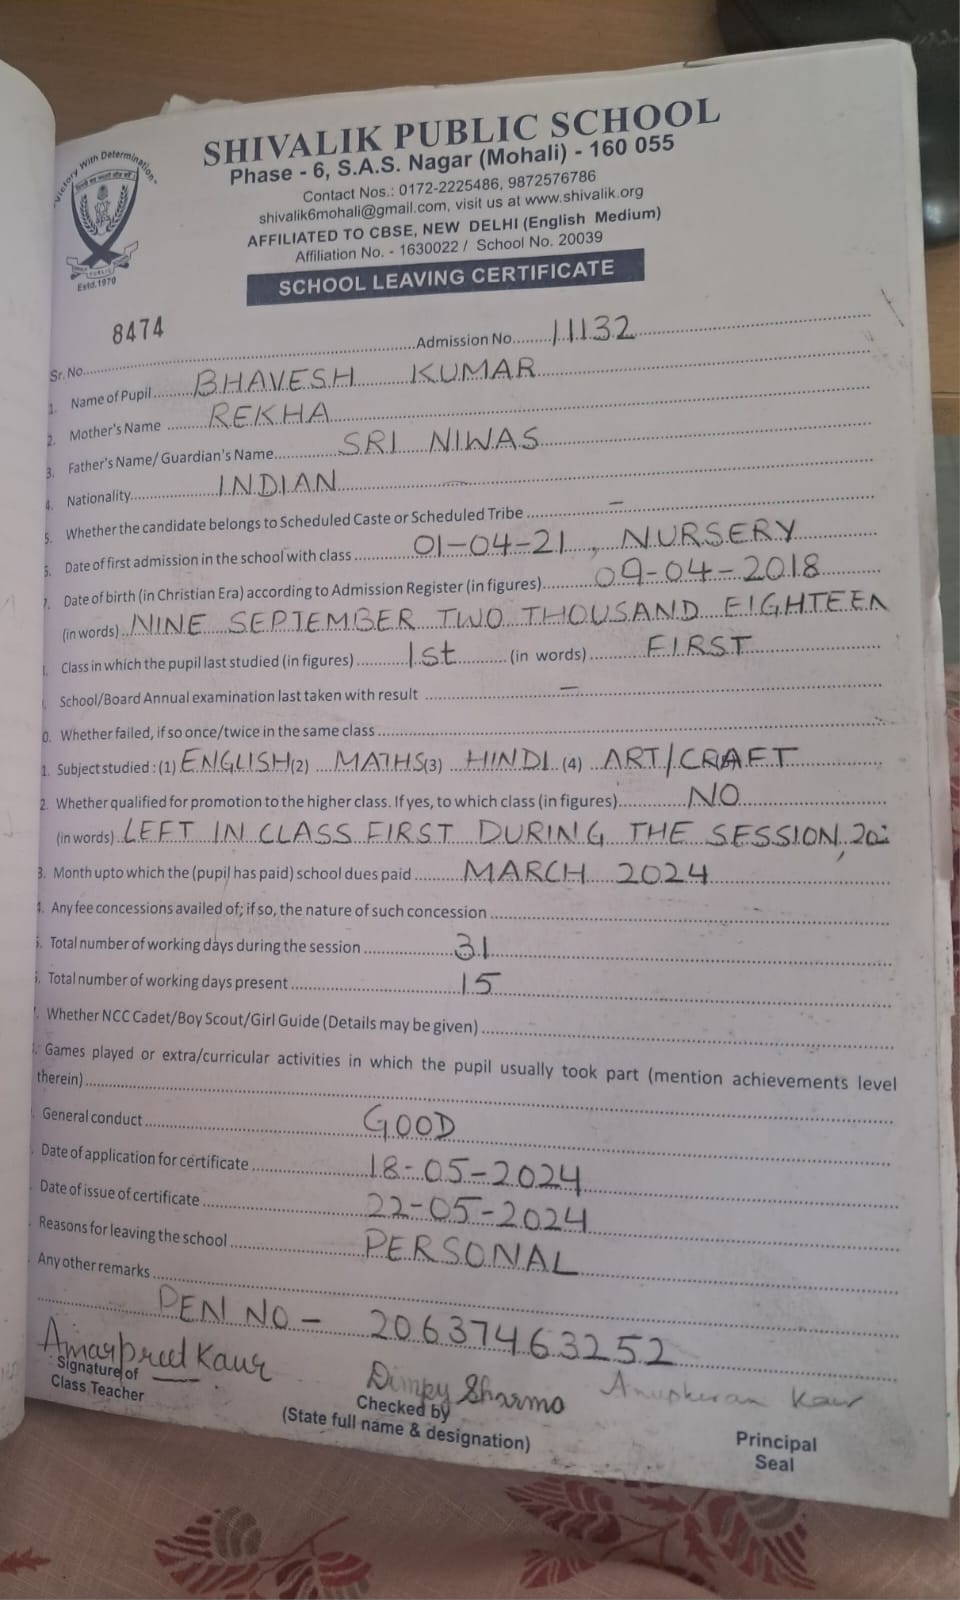 SHIVALIK PUBLIC SCHOOL
Phase - 6, S.A.S. Nagar (Mohali) - 160 055
Contact Nos.: 0172-2225486, 9872576786
shivalik6mohali@gmail.com, visit us at www.shivalik.org
AFFILIATED TO CBSE, NEW DELHI (English Medium)
Affiliation No. - 1630022 / School No. 20039
"Victory With Determination"
Estd.1970
SCHOOL LEAVING CERTIFICATE
8474
Sr. No. Admission No. 11132
1. Name of Pupil BHAVESH KUMAR
2. Mother's Name REKHA
3. Father's Name/ Guardian's Name SRI NIWAS
4. Nationality INDIAN
5. Whether the candidate belongs to Scheduled Caste or Scheduled Tribe –
6. Date of first admission in the school with class 01-04-21, NURSERY
7. Date of birth (in Christian Era) according to Admission Register (in figures) 09-04-2018
(in words) NINE SEPTEMBER TWO THOUSAND EIGHTEEN
Class in which the pupil last studied (in figures) 1st (in words) FIRST
School/Board Annual examination last taken with result –
0. Whether failed, if so once/twice in the same class
1. Subject studied : (1) ENGLISH (2) MATHS (3) HINDI (4) ART/CRAFT
2. Whether qualified for promotion to the higher class. If yes, to which class (in figures) NO
(in words) LEFT IN CLASS FIRST DURING THE SESSION, 
3. Month upto which the (pupil has paid) school dues paid MARCH 2024
4. Any fee concessions availed of; if so, the nature of such concession
5. Total number of working days during the session 31
Total number of working days present 15
Whether NCC Cadet/Boy Scout/Girl Guide (Details may be given)
Games played or extra/curricular activities in which the pupil usually took part (mention achievements level
therein)
General conduct GOOD
Date of application for certificate 18-05-2024
Date of issue of certificate 22-05-2024
Reasons for leaving the school PERSONAL
Any other remarks
PEN NO – 20637463252
Amarpreet Kaur Dimpy Sharma Anupkiran Kaur
Signature of Class Teacher
Checked by
(State full name & designation)
Principal
Seal